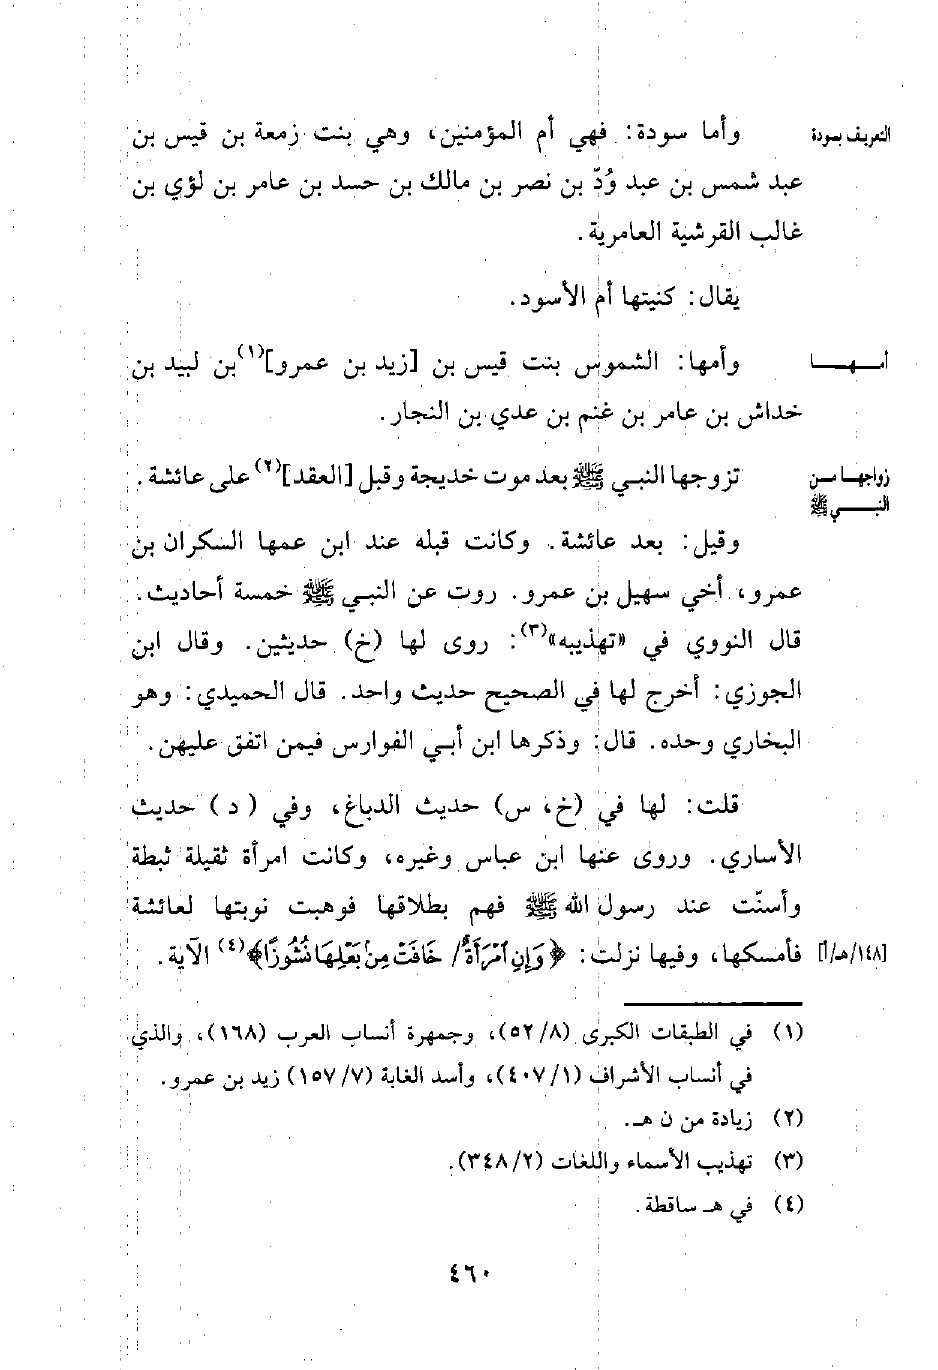 التعريف بسودة
وأما سودة: فهي أم المؤمنين، وهي بنت زمعة بن قيس بن
عبد شمس بن عبد وُدّ بن نصر بن مالك بن حسد بن عامر بن لؤي بن
غالب القرشية العامرية.
يقال: كنيتها أم الأسود.
أمـهـــا
وأمها: الشموس بنت قيس بن [زيد بن عمرو](١) بن لبيد بن
خداش بن عامر بن غنم بن عدي بن النجار.
زواجهـا مـن
النبـــي ﷺ
تزوجها النبي ﷺ بعد موت خديجة وقبل [العقد](٢) على عائشة.
وقيل: بعد عائشة. وكانت قبله عند ابن عمها السكران بن
عمرو، أخي سهيل بن عمرو. روت عن النبي ﷺ خمسة أحاديث.
قال النووي في «تهذيبه»(٣): روى لها (خ) حديثين. وقال ابن
الجوزي: أخرج لها في الصحيح حديث واحد. قال الحميدي: وهو
البخاري وحده. قال: وذكرها ابن أبي الفوارس فيمن اتفق عليهن.
قلت: لها في (خ، س) حديث الدباغ، وفي (د) حديث
الأساري. وروى عنها ابن عباس وغيره، وكانت امرأة ثقيلة ثبطة
وأسنّت عند رسول الله ﷺ فهم بطلاقها فوهبت نوبتها لعائشة
[١٤٨/هـ/أ]
فأمسكها، وفيها نزلت: ﴿وَإِنِ ٱمْرَأَةٌ/ خَافَتْ مِنۢ بَعْلِهَا نُشُوزًا﴾(٤) الآية.
(١) في الطبقات الكبرى (٥٢/٨)، وجمهرة أنساب العرب (١٦٨)، والذي
في أنساب الأشراف (٤٠٧/١)، وأسد الغابة (١٥٧/٧) زيد بن عمرو.
(٢) زيادة من ن هـ.
(٣) تهذيب الأسماء واللغات (٣٤٨/٢).
(٤) في هـ ساقطة.
٤٦٠